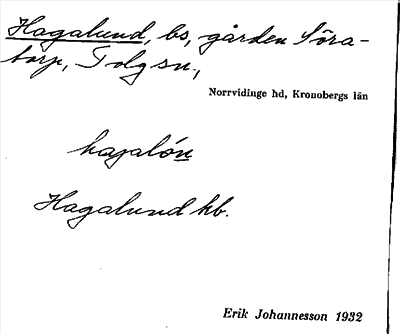 Hagalund, bs, gården Söra-
torp, Tolg sn.,
Norrvidinge hd, Kronobergs län
hagalón
Hagalund hb.
Erik Johannesson 1932